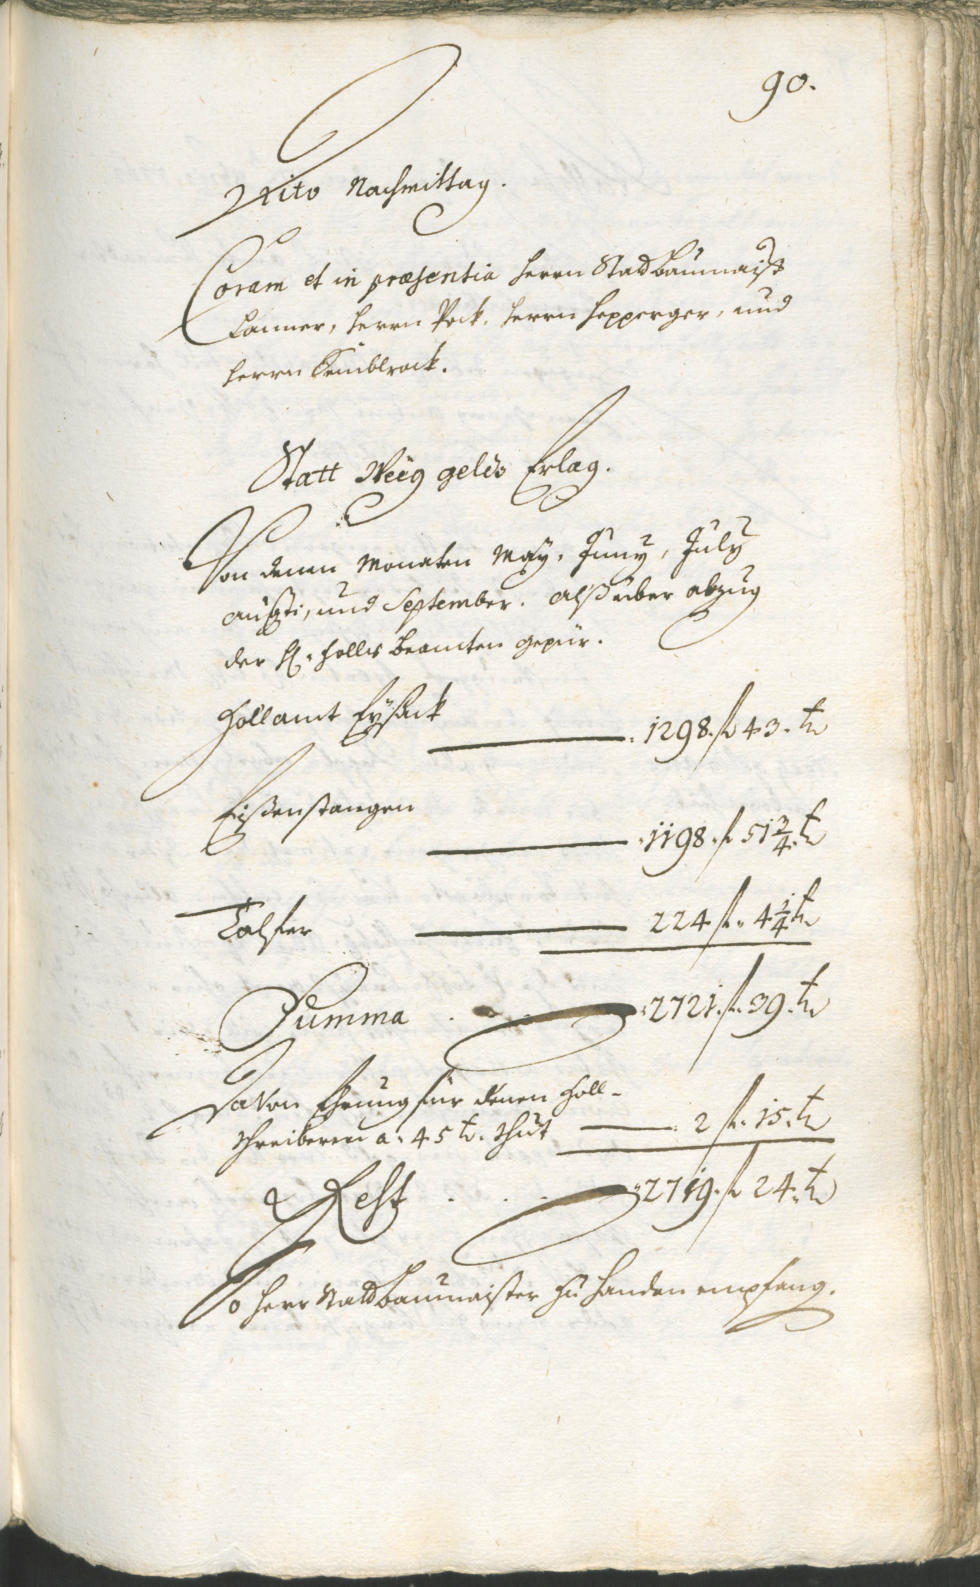 90.
Dito Nachmittag.
Coram et in præsentia herrn Stadbaumaist
Lanner, herrn Pock, herrn hepperger, und
herrn Kemblrock.
Statt Weeg gelds Erlag.
Von denen Monaten May, Juny, July
augsti, und September. alß über abzug
der H. Zolls beamten gepür.
Zollamt Eysack 1298. f 43. kr
Eißenstangen 1198. f 51 3/4. kr
Talfer 224 f. 4 1/4 kr
Summa . 2721. f. 39. kr
Davon Ehrung für denen Zoll-
schreibern a. 45 kr. thut 2 f. 15. kr
Rest . . . 2719. f 24. kr
So herr Stadtbaumaister zu handen empfang.